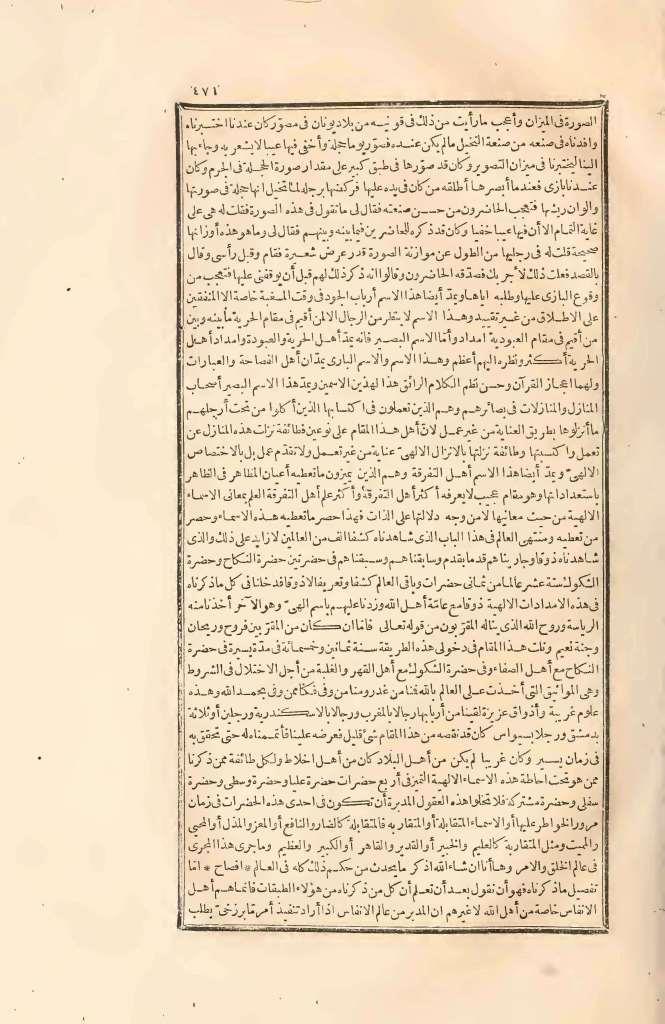 ٤٧١
الصورة فى الميزان وأعجب ما رأيت من ذلك فى قونيه من بلاد يونان فى مصور كان عندنا اختبرناه
وافدناه فى صنعه من صنعة التخيل مالم يكن عنده فصور يوما حجلة وأخفى فيها عيبا لا يشعر به وجاء بها
الينا ليختبرنا فى ميزان التصوير وكان قد صورها فى طبق كبير على مقدار صورة الحجلة فى الجرم وكان
عندنا بازى فعندما أبصرها أطلقه من كان فى يده عليها فركضها برجله لما تخيل انها حجلة فى صورتها
والوان ريشها فتعجب الحاضرون من حسن صنعته فقال لى ما تقول فى هذه الصورة فقلت له هى على
غاية التمام الا أن فيها عيبا خفيا وكان قد ذكره للحاضرين فيما بينه وبينهم فقال لى وما هو هذه أوزانها
صحيحة قلت له فى رجليها من الطول عن موازنة الصورة قدر عرض شعيرة فقام وقبل رأسى وقال
بالقصد فعلت ذلك لأجربك فصدقه الحاضرون وقالوا انه ذكر ذلك لهم قبل أن يوقفنى عليها فتعجبت من
وقوع البازى عليها وطلبه اياها ويمد أيضا هذا الاسم أرباب الجود فى وقت المسغبة خاصة لا المنفقين
على الاطلاق من غير تقييد وهذا الاسم لا ينظر من الرجال الا لمن أقيم فى مقام الحرية ما بينه وبين
من أقيم فى مقام العبودية امداد وأما الاسم البصير فانه يمد أهل الحرية والعبودة وامداد أهل
الحرية أكثر ونظره اليهم أعظم وهذا الاسم والاسم البارى يمدان أهل الفصاحة والعبارات
ولهما اعجاز القرآن وحسن نظم الكلام الرائق هذا لهذين الاسمين ويمد هذا الاسم البصير أصحاب
المنازل والمنازلات فى بصائرهم وهم الذين تعملون فى اكتسابها الذين أكلوا من تحت أرجلهم
ما أنزلوها بطريق العناية من غير عمل لان أهل هذا المقام على نوعين فطائفة نزلت هذه المنازل عن
تعمل واكتسبتها وطائفة نزلتها بالانزال الالهى عناية من غير تعمل ولا تقدم عمل بل بالاختصاص
الالهى ويمد أيضا هذا الاسم أهل التفرقة وهم الذين يميزون ما تعطيه أعيان المظاهر فى الظاهر
باستعداداتها وهو مقام عجيب لا يعرفه أكثر أهل التفرقة وأكثر علم أهل التفرقة العلم بمعانى الاسماء
الالهية من حيث معانيها لا من وجه دلالتها على الذات فهذا حصر ما تعطيه هذه الاسماء وحصر
من تعطيه ومنتهى العالم فى هذا الباب الذى شاهدناه كشفا الف من العالمين لا زايد على ذلك والذى
شاهدناه ذوقا وجاريناهم قدما بقدم وسابقناهم وسبقناهم فى حضرتين حضرة النكاح وحضرة
الشكوك ستة عشر عالما من ثمانى حضرات وباقى العالم كشفا وتعريفا لا ذوقا فدخلنا فى كل ما ذكرناه
فى هذه الامدادات الالهية ذوقا مع عامة أهل الله وزدنا عليهم باسم الهى وهو الآخر أخذنا منه
الرياسة وروح الله الذى يناله المقربون من قوله تعالى فاما ان كان من المقربين فروح وريحان
وجنة نعيم ونلت هذا المقام فى دخولى هذه الطريقة سنة ثمانين وخمسمائة فى مدة يسيرة فى حضرة
النكاح مع أهل الصفاء وفى حضرة الشكوك مع أهل القهر والغلبة من أجل الاختلال فى الشروط
وهى المواثيق التى أخذت على العالم بالله فمنا من غدر ومنا من وفى فكنا ممن وفى بحمد الله وهذه
علوم غريبة وأذواق عزيزة لقينا من أربابها رجالا بالمغرب ورجالا بالاسكندرية ورجلين أو ثلاثة
بدمشق ورجلا بسيواس كان قد نقصه من هذا المقام شئ قليل فعرضه علينا فأتممناه له حتى تحقق به
فى زمان يسير وكان غريبا لم يكن من أهل البلاد كان من أهل اخلاط ولكل طائفة ممن ذكرنا
ممن هو تحت احاطة هذه الاسماء الالهية التميز فى أربع حضرات حضرة عليا وحضرة وسطى وحضرة
سفلى وحضرة مشتركة فلا تخلوا هذه العقول المدبرة أن تكون فى احدى هذه الحضرات فى زمان
مرور الخواطر عليها أو الاسماء المتقابلة أو المتقاربه فالمتقابلة كالضار والنافع أو المعز والمذل أو المحيى
والمميت ومثل المتقاربة كالعليم والخبير أو القدير والقاهر أو الكبير والعظيم وما جرى هذا المجرى
فى عالم الخلق والامر وها أنا ان شاء الله اذكر ما يحدث من حكم ذلك كله فى العالم * افصاح * اما
تفصيل ما ذكرناه فهو أن نقول بعد أن تعلم أن كل من ذكرناه من هؤلاء الطبقات فانما هم أهل
الانفاس خاصة من أهل الله لا غيرهم ان المدبر من عالم الانفاس اذا أراد تنفيذ أمر ما برزخى يطلب